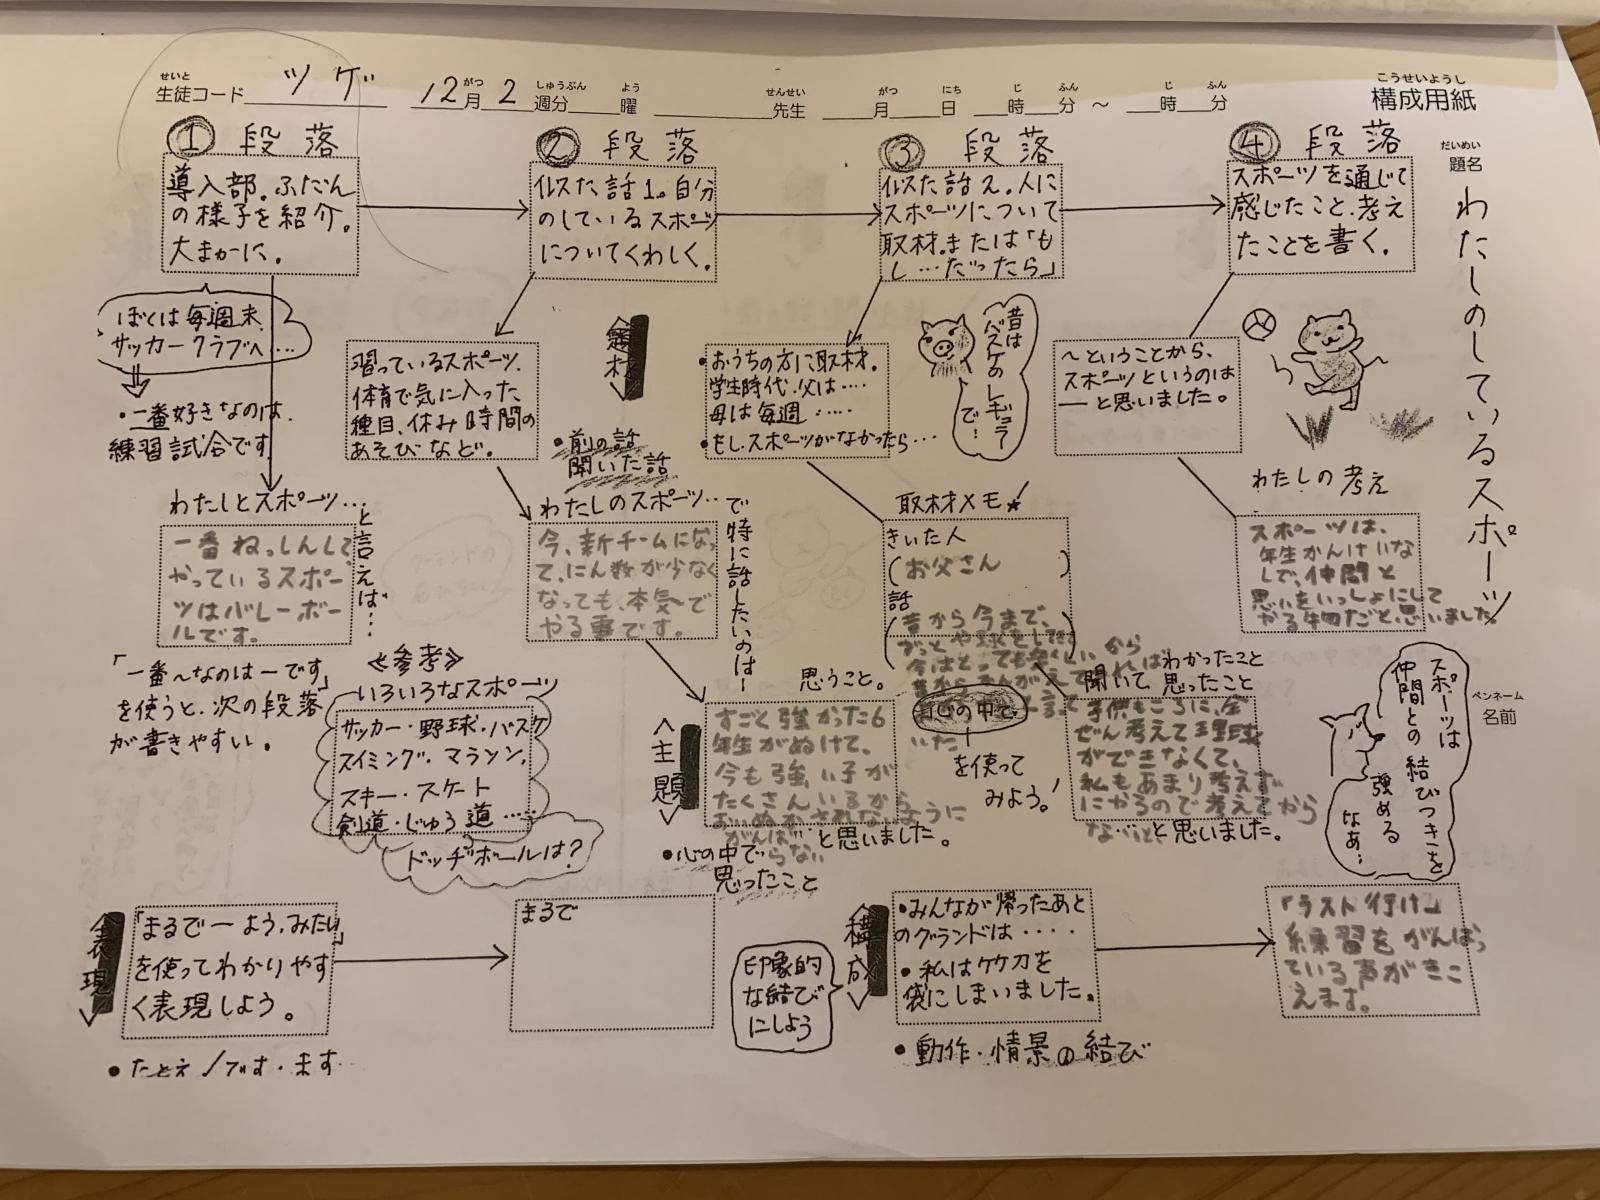 せいと
生徒コード ツゲ 12月2週分 曜 先生 月 日 時 分 ～ 時 分
がつ しゅうぶん よう せんせい がつ にち じ ふん じ ふん
こうせいようし
構成用紙
だいめい
題名
わたしのしているスポーツ
ペンネーム
名前
① 段落
導入部。ふだん
の様子を紹介。
大まかに。
② 段落
似た話1。自分
のしているスポーツ
についてくわしく。
③ 段落
似た話2。人に
スポーツについて
取材。または「も
し…だったら」
④ 段落
スポーツを通じて
感じたこと、考え
たことを書く。
ぼくは毎週末、
サッカークラブへ…
・一番好きなのは、
練習試合です。
習っているスポーツ、
体育で気に入った
種目、休み時間の
あそびなど。
題材
・前の話
聞いた話
・おうちの方に取材。
学生時代、父は‥‥
母は毎週‥‥
・もしスポーツがなかったら…
昔は
バスケの
レギュラー
で…
～ということから、
スポーツというのは
―と思いました。
わたしとスポーツ…
と言えば…
一番ねっしんして
やっているスポー
ツはバレーボー
ルです。
わたしのスポーツ‥
で特に話したいのは―
今、新チームになっ
て、にん数が少なく
なっても、本気で
やる事です。
取材メモ
きいた人
(お父さん )
話
昔から今まで、
わたしの考え
スポーツは、
年生かんけいな
しで、仲間と
思いをいっしょにして
やる物だと思いました。
「一番～なのは―です」
を使うと、次の段落
が書きやすい。
≪参考≫
いろいろなスポーツ
サッカー・野球・バスケ
スイミング・マラソン、
スキー・スケート
剣道・じゅう道……
ドッヂボールは？
主題
思うこと。
すごく強かった6
年生がぬけて、
今も強い子が
たくさんいるから
おいぬかされないように
と思いました。
・心の中で
思ったこと
心の中で、
―
を使って
みよう。！
聞いて わかったこと
思ったこと
子供もころに、全
ぜん考えて野球
ができなくて、
私もあまり考えず
にやるので考えてから
と思いました。
スポーツは
仲間との結びつきを
強める
なあ…
表現
「まるで―よう、みたい」
を使ってわかりやす
く表現しよう。
・たとえ／です・ます
まるで
印象的
な結び
にしよう
構成
・みんなが帰ったあと
のグランドは‥‥
・私は竹刀を
袋にしまいました。
・動作・情景の結び
「ラスト行け」
練習をがんばっ
ている声がきこ
えます。